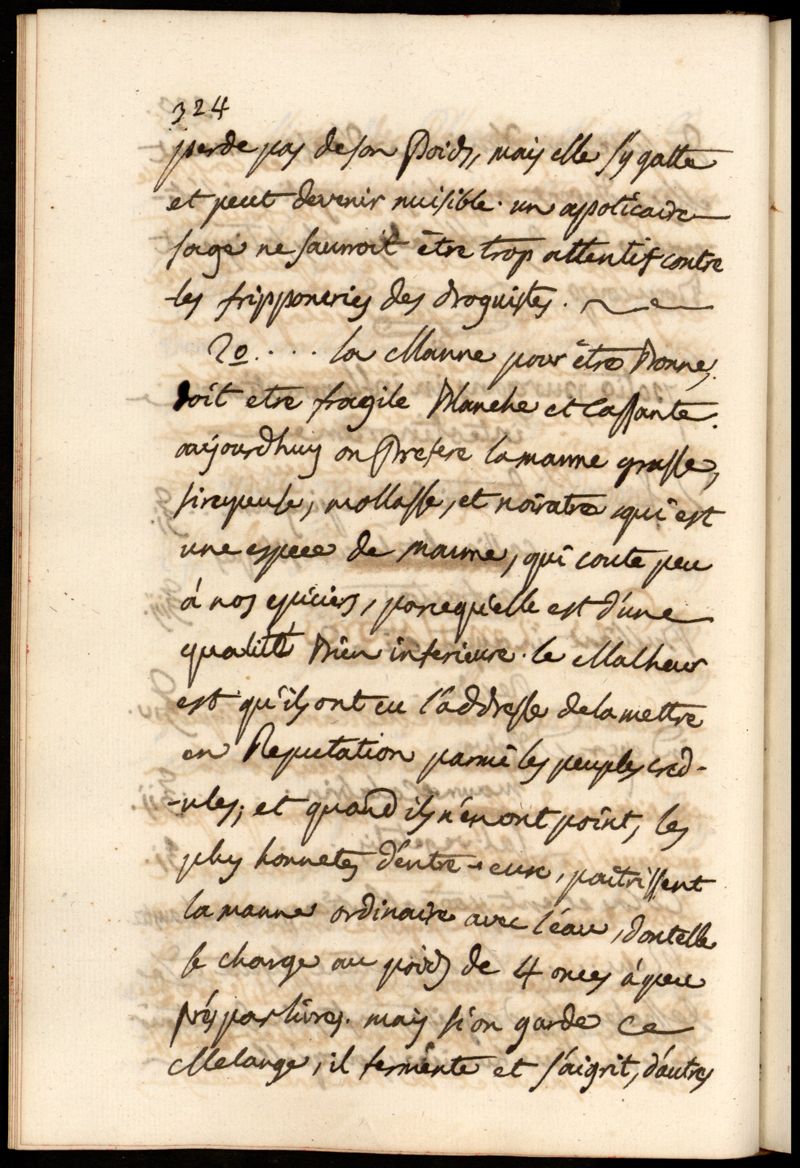 324
perde pas de son Poids, mais elle s'y gatte
et peut devenir nuisible. un apoticaire
sage ne sauroit être trop attentif contre
les fripponeries des droguistes.
2º.... la Manne pour être Bonne,
doit etre fragile Blanche et cassante.
aujourdhuy on Prefere la manne grasse,
sirupeuse, mollasse, et noiratre qui est
une espece de manne, qui coute peu
á nos epiciers, parcequ'elle est d'une
qualité Bien inferieure. le Malheur
est qu'ils ont eu l'addresse de la mettre
en Reputation parmi les peuples cred-
-ules; et quand ils n'en ont point, les
plus honnetes d'entre-eux, paitrissent
la manne ordinaire avec l'eau, dont elle
se charge au poids de 4 onces á peu
prés par livres. mais si on garde ce
Melange, il fermente et s'aigrit, d'autres